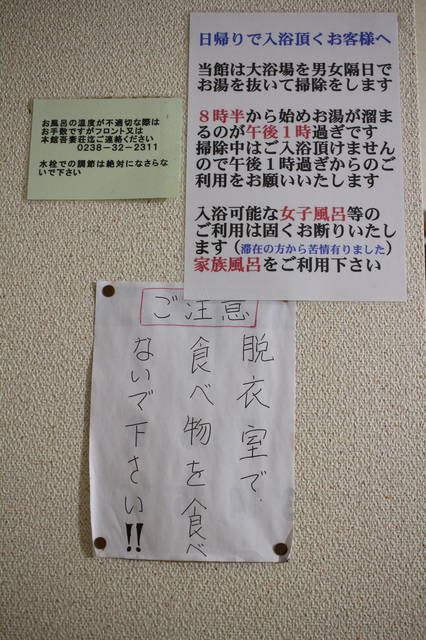 お風呂の温度が不適切な際は
お手数ですがフロント又は
本館吾妻荘迄ご連絡ください
0238-32-2311
水栓での調節は絶対になさらな
いで下さい
日帰りで入浴頂くお客様へ
当館は大浴場を男女隔日で
お湯を抜いて掃除をします
8時半から始めお湯が溜ま
るのが午後1時過ぎです
掃除中はご入浴頂けません
ので午後1時過ぎからのご
利用をお願いいたします
入浴可能な女子風呂等の
ご利用は固くお断りいたし
ます（滞在の方から苦情有りました）
家族風呂をご利用下さい
ご注意
脱衣室で
食べ物を食べ
ないで下さい!!